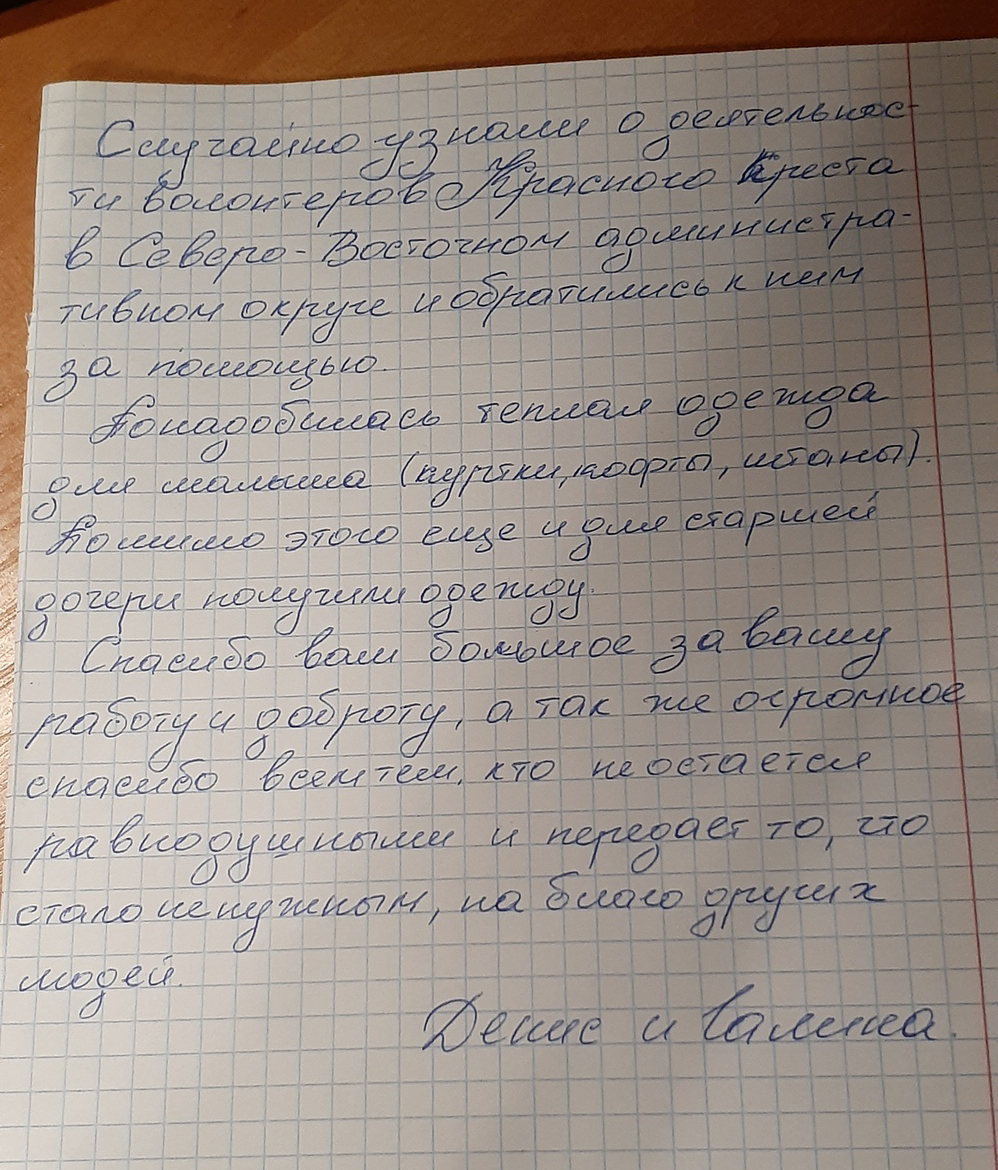 Случайно узнали о деятельнос-
ти волонтеров Красного Креста
в Северо-Восточном администра-
тивном округе и обратились к ним
за помощью.
Понадобилась теплая одежда
для малыша (куртки, кофты, штаны).
Помимо этого еще и для старшей
дочери получили одежду.
Спасибо вам большое за вашу
работу и доброту, а так же огромное
спасибо всем тем, кто не остается
равнодушными и передает то, что
стало ненужным, на благо других
людей.
Денис и Галина.